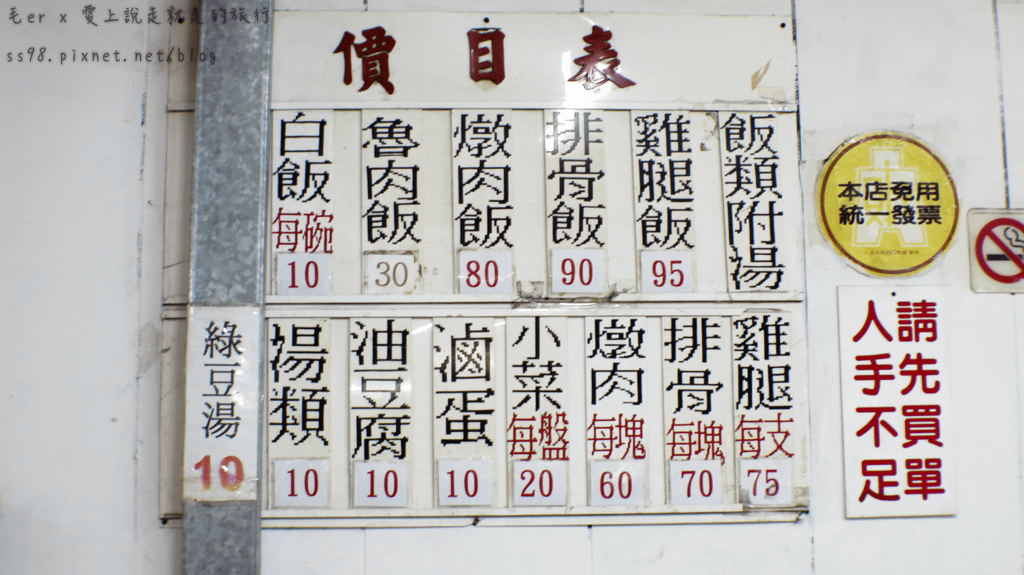 毛er x 愛上說走就走的旅行
ss98.pixnet.net/blog
價目表
白飯 每碗 10
魯肉飯 30
燉肉飯 80
排骨飯 90
雞腿飯 95
飯類附湯
綠豆湯 10
湯類 10
油豆腐 10
滷蛋 10
小菜 每盤 20
燉肉 每塊 60
排骨 每塊 70
雞腿 每支 75
本店免用
統一發票
請先買單
人手不足